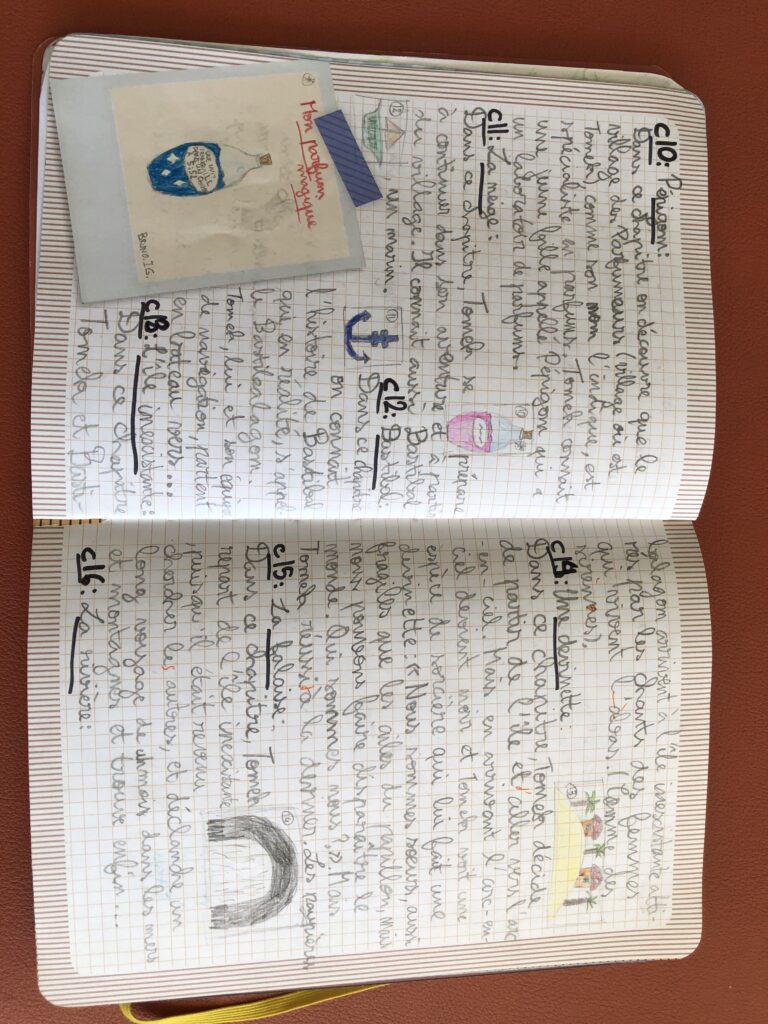 c10: Pépigom:
Dans ce chapitre on découvre que le
village des Parfumeurs (village où est
Tomek) comme son nom l'indique, est
spécialiste en parfums. Tomek connait
une jeune fille appellé Pépigom qui a
un laboratoire de parfums.
c11: La neige:
Dans ce chapitre, Tomek se prépare
à continuer dans son aventure et à partir
du village. Il connait aussi Bastibal
un marin.
c12: Bastibal:
Dans ce chapitre
on connait
l'histoire de Bastibal
qui, en réalité, s'appel
le Bastibalagom.
Tomek, lui et son équipe
de navigation, partent
en bateau vers...
c13: L'île inexistante:
Dans ce chapitre
Tomek et Basti-
Mon parfum
magique
BRUNO.IG.
balagom arrivent à l'île inexistante atti-
rés par les chants des femmes
qui vivent dans, (comme des
sirènes).
c14: Une devinette:
Dans ce chapitre, Tomek décide
de partir de l'île et aller vers l'arc
-en-ciel. Mais en arrivant l'arc-en-
ciel devient noir et Tomek voit une
espèce de sorcière qui lui fait une
devinette: «Nous sommes sœurs, aussi
fragiles que les ailes du papillon, Mais
nous pouvons faire disparaître le
monde. Qui sommes nous?» Mais
Tomek réussit la deviner. Les paupières
c15: La falaise:
Dans ce chapitre, Tomek
repart de l'île inexistante
puisqu'il était revenu
chercher les autres, et déclanche un
long voyage de un mois dans les mers
et montagnes et trouve enfin...
c16: La rivière: